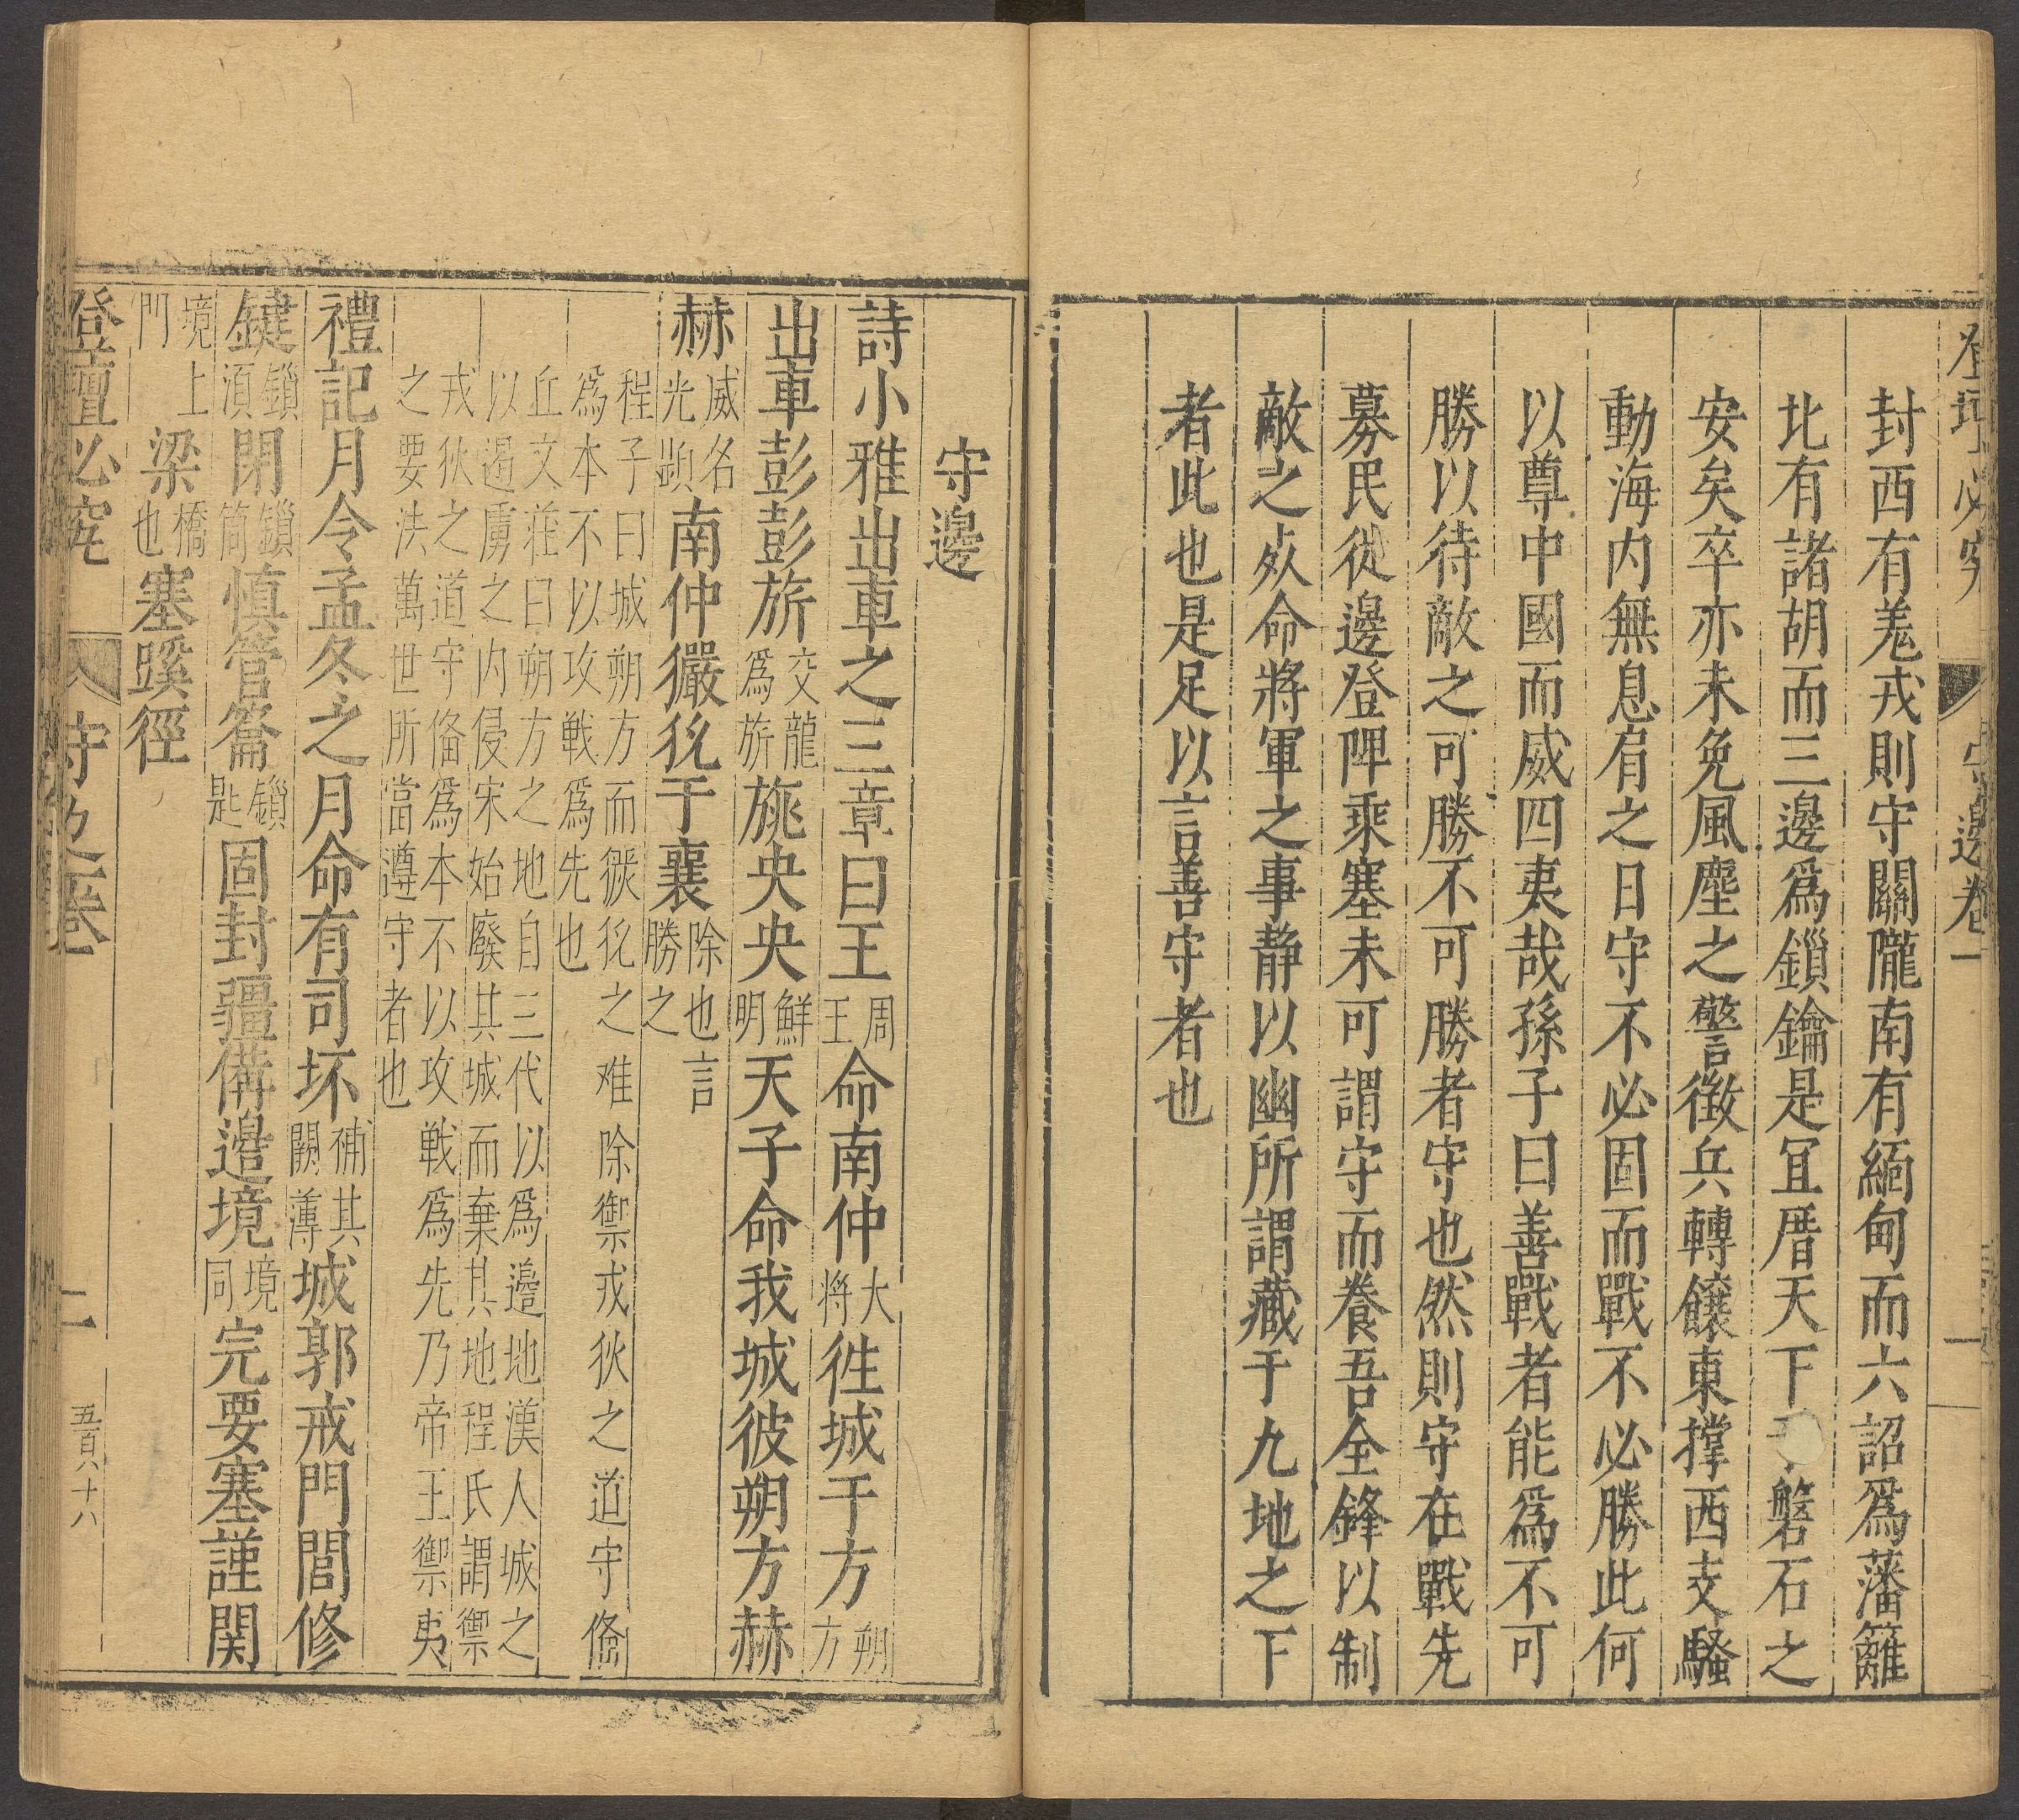 登壇必究 守邊卷一 一
封西有羗戎則守關隴南有緬甸而六詔爲藩籬
北有諸胡而三邊爲鎻鑰是冝厝天下 磐石之
安矣卒亦未免風塵之警徴兵轉饟東撑西支騷
動海内無息肩之日守不必固而戰不必勝此何
以尊中國而威四夷哉孫子曰善戰者能爲不可
勝以待敵之可勝不可勝者守也然則守在戰先
募民從邊登陴乘塞未可謂守而養吾全鋒以制
敵之死命將軍之事静以幽所謂藏于九地之下
者此也是足以言善守者也
守邊
詩小雅出車之三章曰王周王命南仲大將徃城于方朔方
出車彭彭旂交龍爲旂旐央央鮮明天子命我城彼朔方赫
赫威名光顯南仲玁狁于襄除也言勝之
程子曰城朔方而玁狁之难除禦戎狄之道守備
爲本不以攻戰爲先也
丘文莊曰朔方之地自三代以爲邊地漢人城之
以遏虜之内侵宋始廢其城而棄其地程氏謂禦
戎狄之道守備爲本不以攻戰爲先乃帝王禦夷
之要法萬世所當遵守者也
禮記月令孟冬之月命有司坏補其闕薄城郭戒門閭修
鍵鎖須閉鎖筒慎管籥鎖匙固封疆備邉境境同完要塞謹関
境上門梁橋也塞蹊徑
登壇必究 守邊卷 二 五百八十八